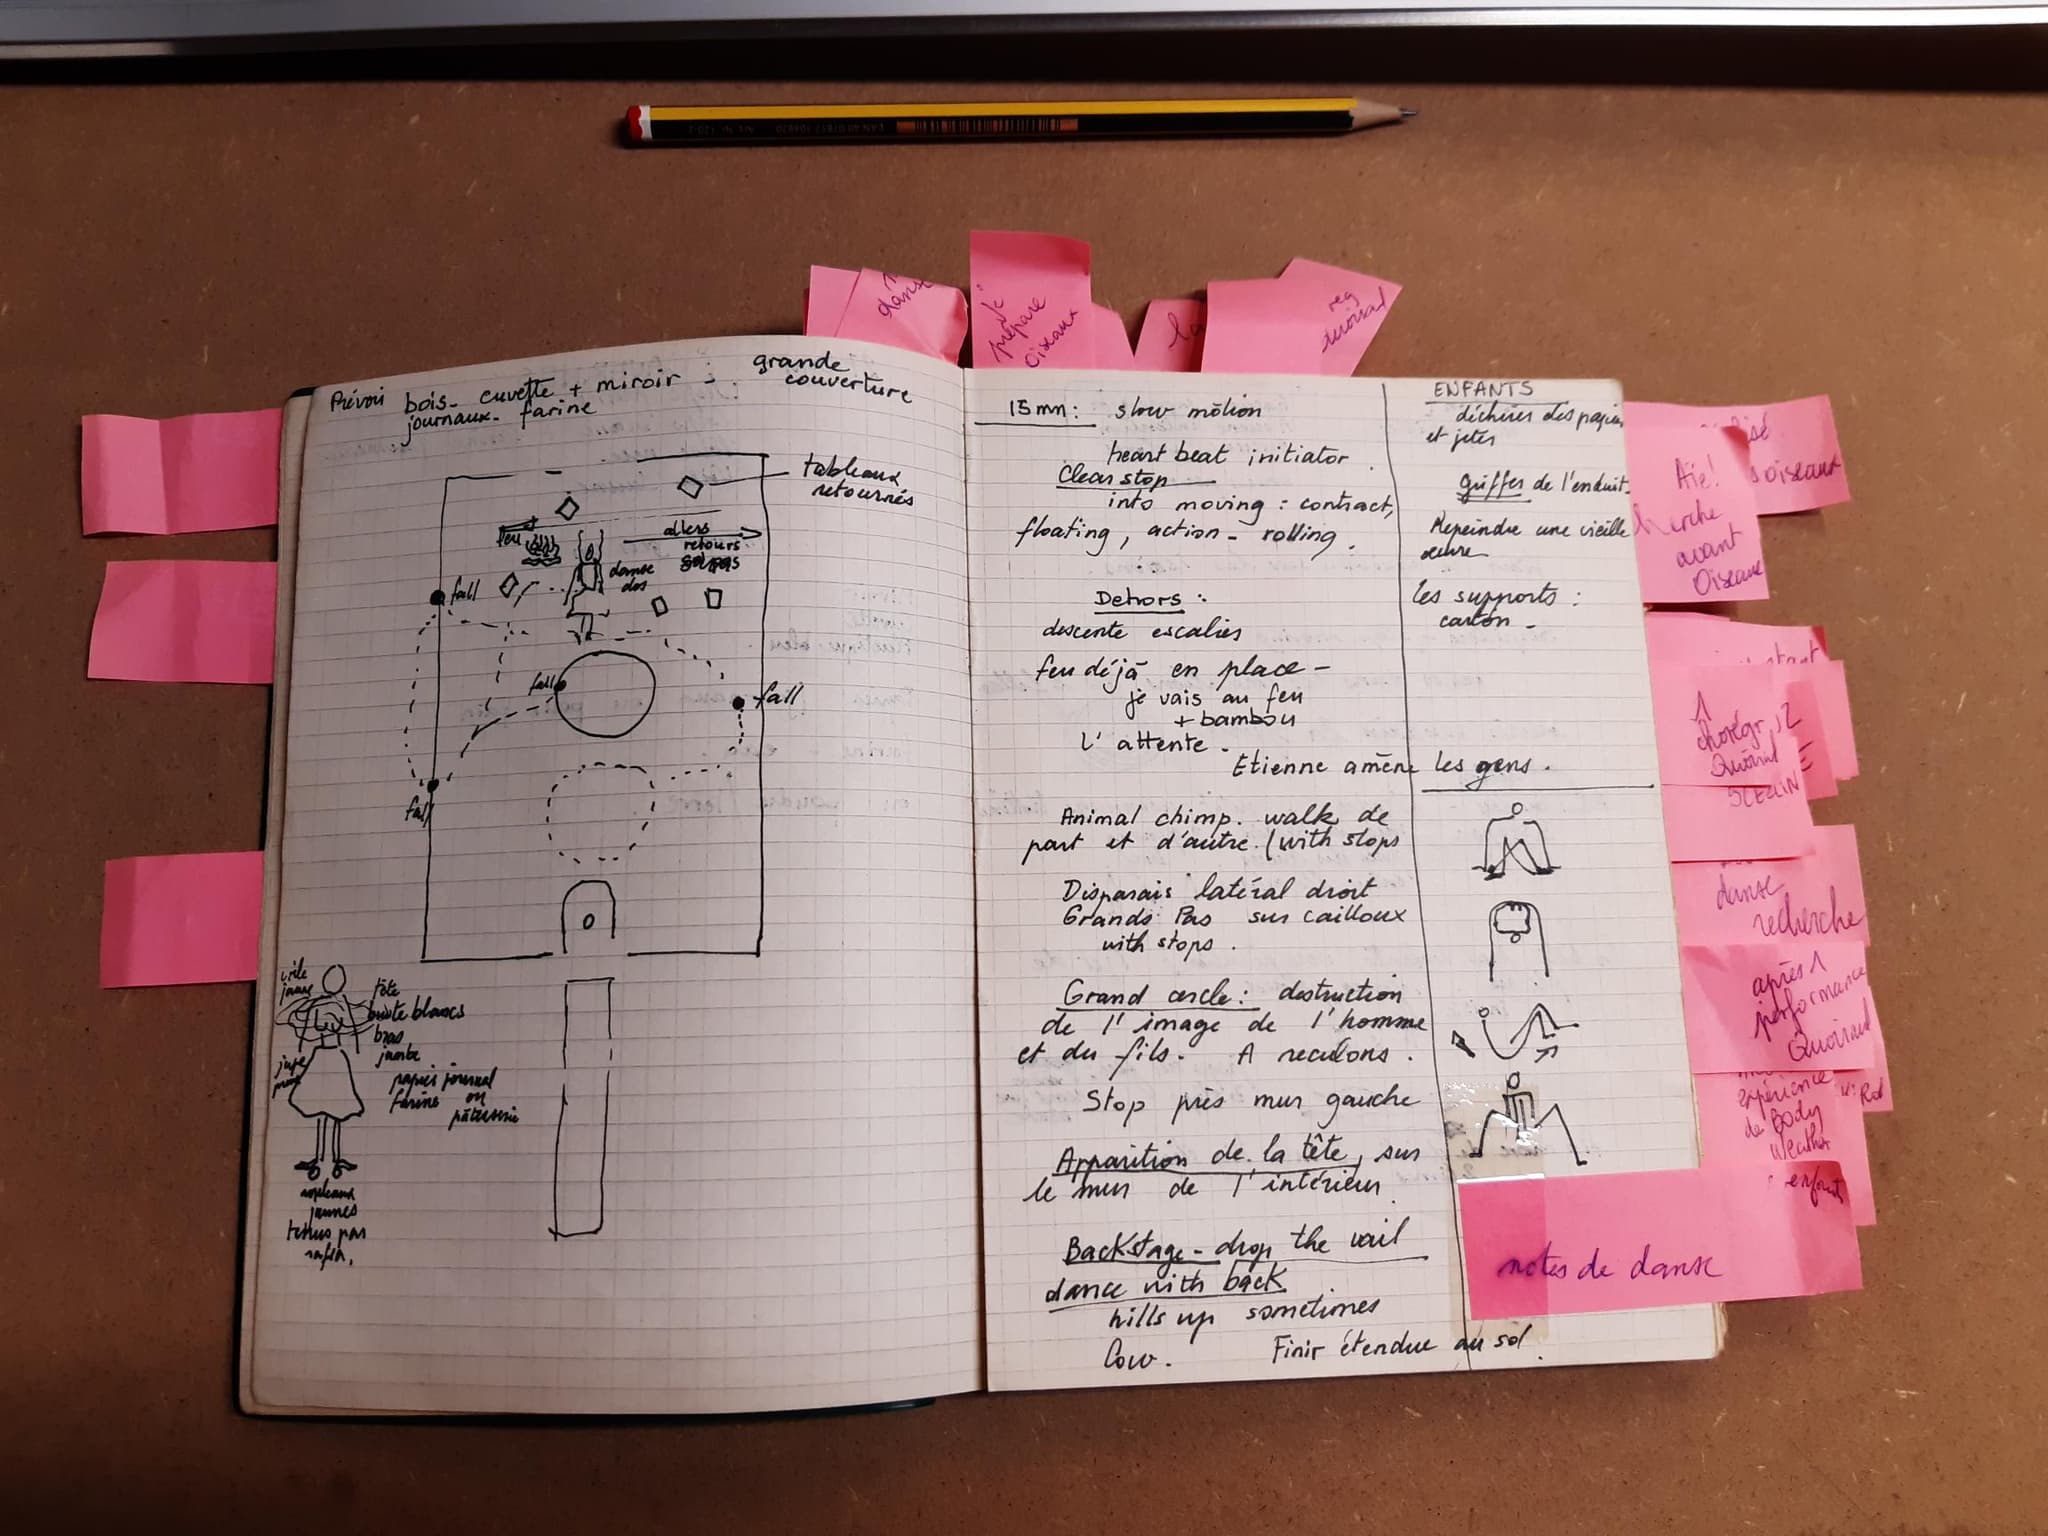 Prévoir bois - cuvette + miroir ; grande couverture
journaux - farine
tableaux
retournés
feu
allers
retours
danse
dos
fall
fall
fall
fall
tête
buste blancs
bras
jambe
papier journal
farine ou
jaunes
tenus par
15 mn : slow motion
heart beat initiator.
Clear stop
into moving : contract,
floating, action - rolling.
Dehors :
descente escaliers
feu déjà en place -
je vais au feu
+ bambou
L'attente.
Etienne amène les gens.
Animal chimp. walk de
part et d'autre. (with stops
Disparais latéral droit
Grands Pas sur cailloux
with stops.
Grand cercle : destruction
de l'image de l'homme
et du fils. A reculons.
Stop près mur gauche
Apparition de la tête, sur
le mur de l'intérieur.
Backstage - drop the vail
dance with back
hills up sometimes
low. Finir étendue au sol.
ENFANTS
déchirer des papiers
et jeter
griffes de l'enduit.
Repeindre une vieille
œuvre
les supports :
carton -
danse
Je
prépare
Oiseaux
la
oiseaux
Aïe!
avant
Oiseaux
1
chorégr
danse
recherche
après 1
performance
expérience
de Body
Weather
enfants
notes de danse